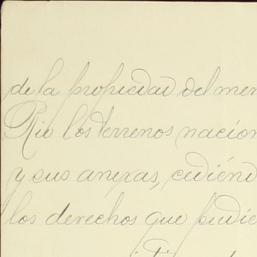 de la propiedad del men
Rio los terrenos nacion
y sus anexas, cediénd
los derechos que pudie